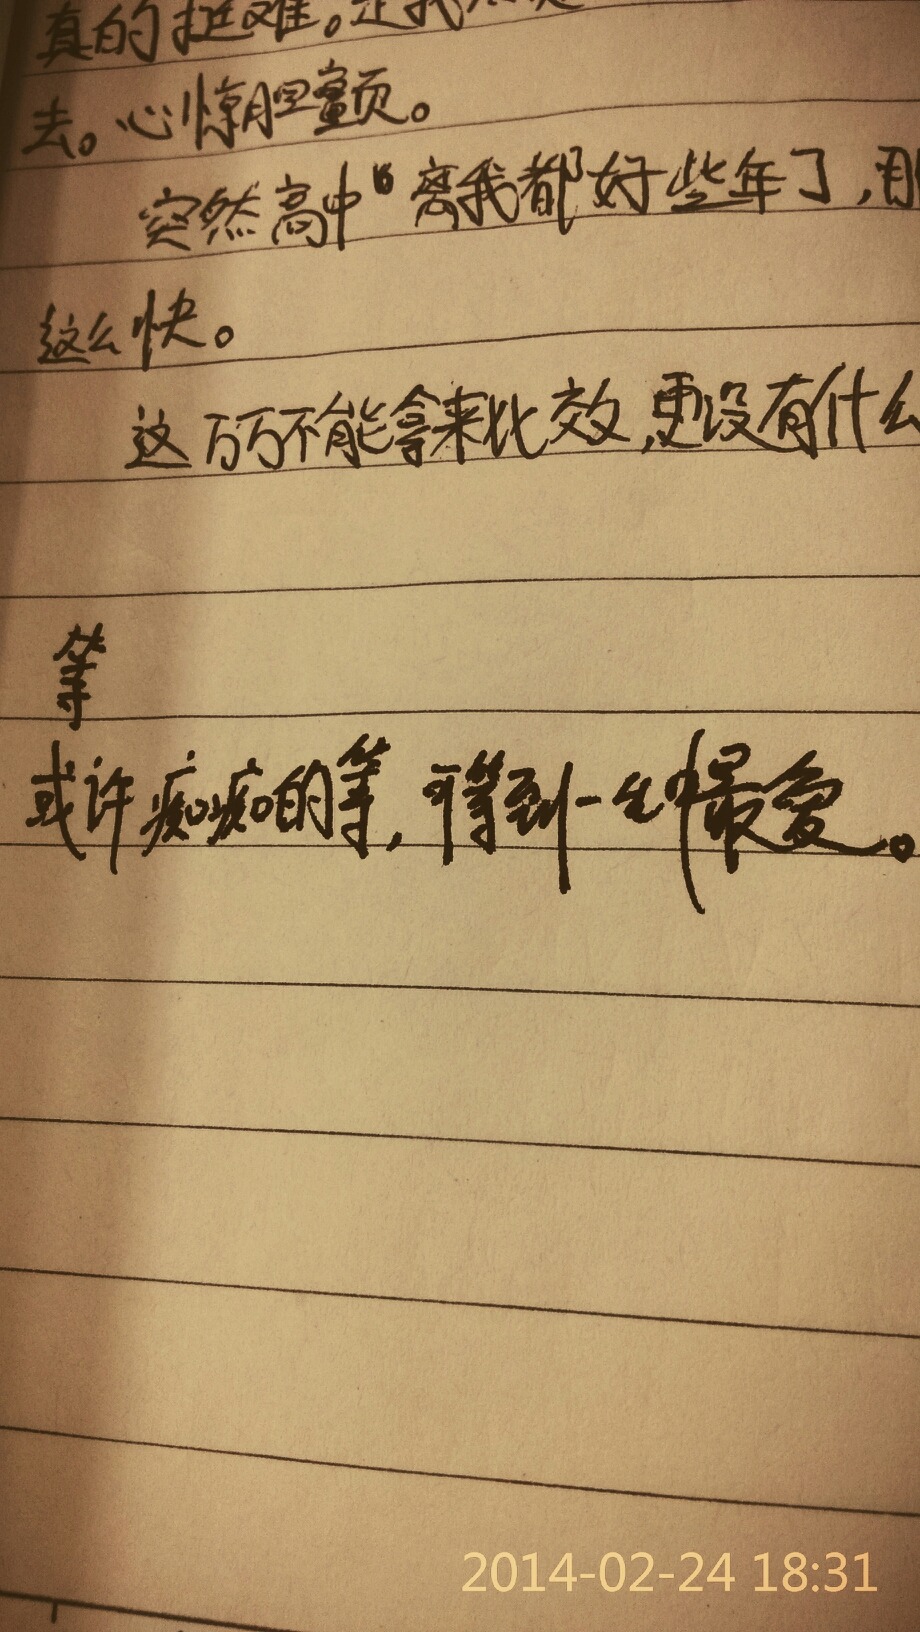 真的挺难。是我
去。心惊胆颤。
突然高中离我都好些年了，那
这么快。
这万万不能拿来比效，更没有什么
等
或许痴痴的等，可等到一生中最爱。
2014-02-24 18:31